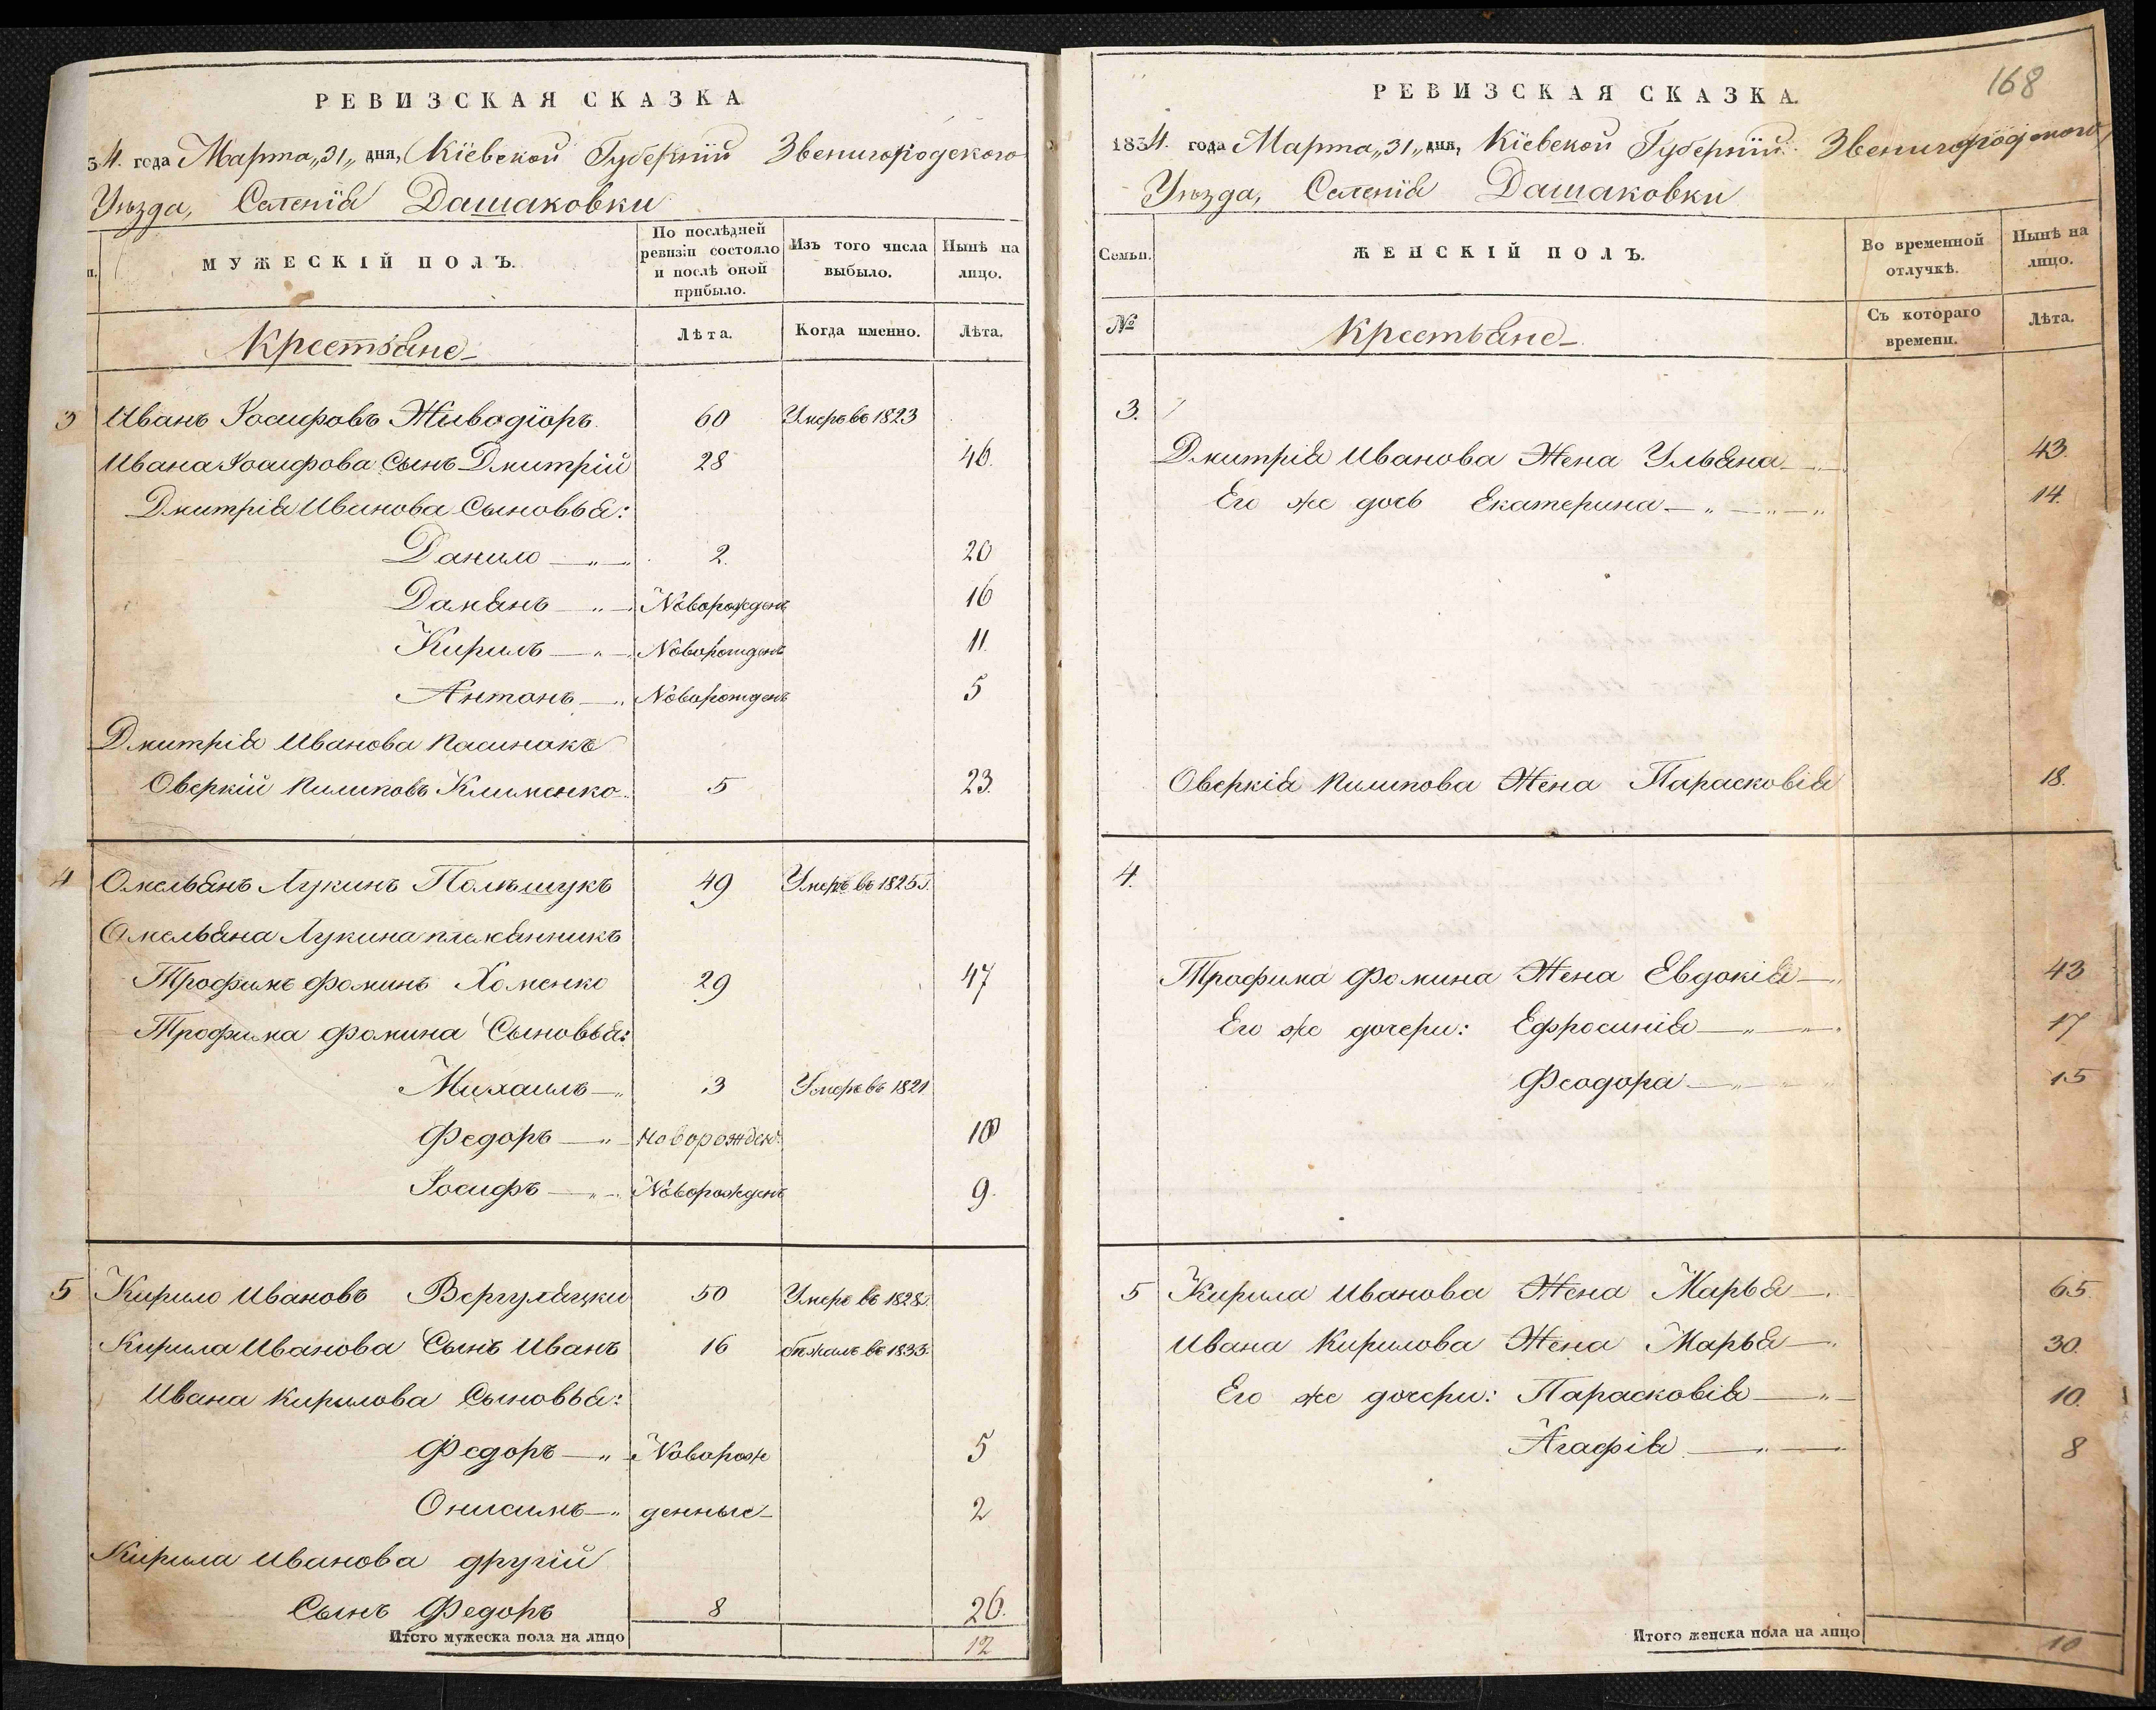 РЕВИЗСКАЯ СКАЗКА
34. года Марта „31„ дня, Кіевской Губерніи Звенигородского
Уѣзда, Селенія Дашаковки
МУЖЕСКІЙ ПОЛЪ.
По послѣдней ревизіи состояло и послѣ оной прибыло.
Изъ того числа выбыло.
Нынѣ на лицо.
Крестьяне
Лѣта.
Когда именно.
Лѣта.
3 Иванъ Іосифовъ Живодіоръ 60 Умеръ въ 1823
Ивана Іосифова Сынъ Дмитрій 28 46.
Дмитрія Иванова Сыновья:
Данило 2. 20
Дамянъ Новорожденъ 16
Кирилъ Новорожденъ 11.
Антонъ Новорожденъ 5
Дмитрія Иванова пасинокъ
Оверкій Пилиповъ Клименко 5 23.
4 Омельянъ Лукинъ Полѣшукъ 49 Умеръ въ 1825г.
Омельяна Лукина племянникъ
Трофимъ Фоминъ Хоменко 29 47
Трофима Фомина Сыновья:
Михаилъ 3 Умеръ въ 1821.
Федоръ новорожден. 10
Іосифъ Новорожденъ 9.
5 Кирило Ивановъ 50 Умеръ въ 1828г.
Кирила Иванова Сынъ Иванъ 16 бѣжалъ въ 1833.
Ивана Кирилова Сыновья:
ФедоръНоворож 5
Онисимъ денные 2
Кирила Иванова другій
Сынъ Федоръ 8 26.
Итого мужеска пола на лицо 12
168
РЕВИЗСКАЯ СКАЗКА.
1834. года Марта „31„ дня, Кіевской Губерніи Звенигородского
Уѣзда, Селенія Дашаковки
Семьи.
ЖЕНСКІЙ ПОЛЪ.
Во временной отлучкѣ.
Нынѣ на лицо.
№
Крестьяне
Съ котораго времени.
Лѣта.
3.
Дмитрія Иванова Жена Ульяна 43.
Его же дочь Екатерина 14.
Оверкія Пилипова Жена Парасковія 18.
4.
Трофима Фомина Жена Евдокія 43
Его же дочери: Ефросинія 17
Феодора 15
5 Кирила Иванова Жена Марья 65.
Ивана Кирилова Жена Марья 30.
Его же дочери: Парасковія 10.
Агафія 8
Итого женска пола на лицо 10